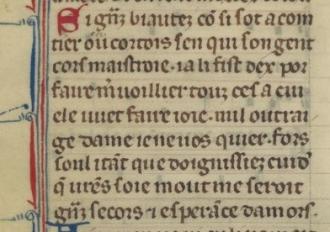 Si g̃nz biautez cõ si sot acoin
tier ou cortois sen qui son gent
cors maistroie. ia li fist dex por
faire m̃uoillier touz ces a cui
ele uuet faire ioie. nul outrai
ge dame ie ne uos quier. fors
soul itãt que doignissiez cuid̾
q̃ ur̃es soie mout me seroit
g̃nz secors ⁊ esperãce damors.